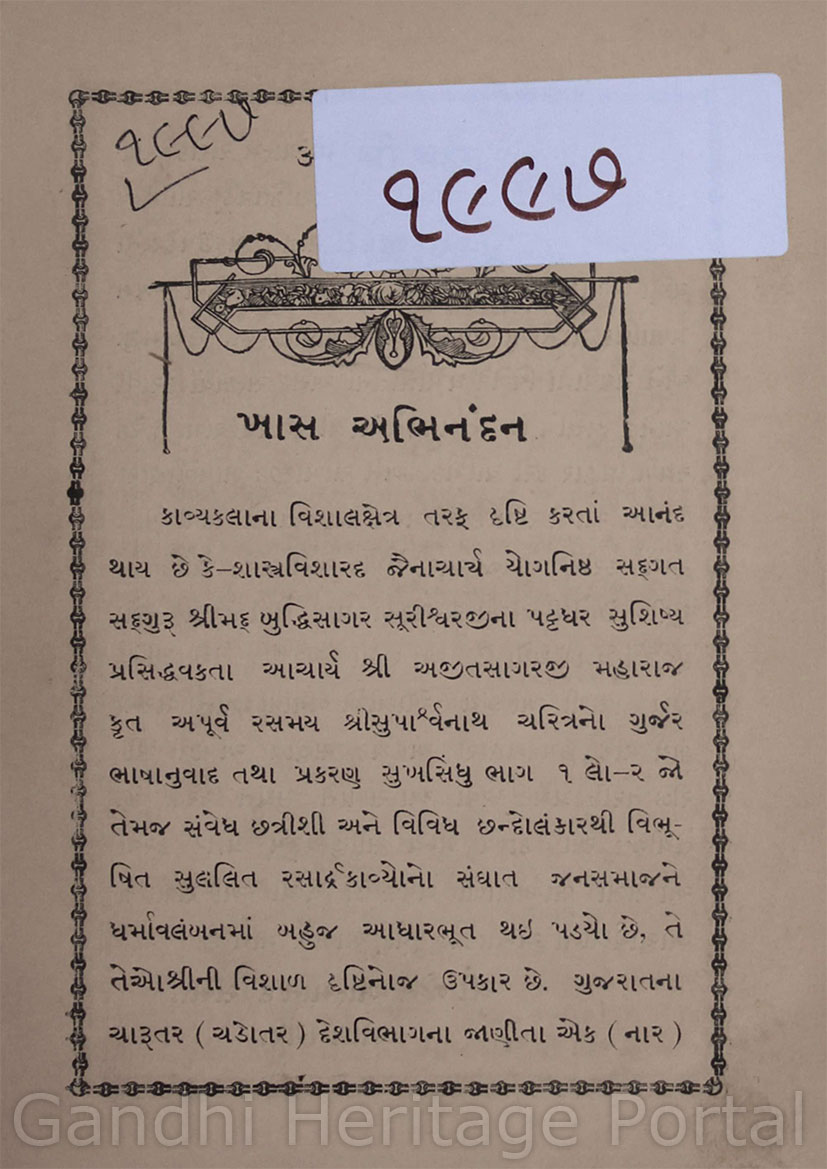 ૧૯૯૭
૧૯૯૭
ખાસ અભિનંદન
કાવ્યકલાના વિશાલક્ષેત્ર તરફ દૃષ્ટિ કરતાં આનંદ
થાય છે કે–શાસ્ત્રવિશારદ જૈનાચાર્ય યોગનિષ્ઠ સદ્ગત
સદ્ગુરૂ શ્રીમદ્ બુદ્ધિસાગર સૂરીશ્વરજીના પટ્ટધર સુશિષ્ય
પ્રસિદ્ધવકતા આચાર્ય શ્રી અજીતસાગરજી મહારાજ
કૃત અપૂર્વ રસમય શ્રીસુપાર્શ્વનાથ ચરિત્રનો ગુર્જર
ભાષાનુવાદ તથા પ્રકરણ સુખસિંધુ ભાગ ૧ લો–૨ જો
તેમજ સંવેધ છત્રીશી અને વિવિધ છન્દોલંકારથી વિભૂ-
ષિત સુલલિત રસાર્દ્રકાવ્યોનો સંઘાત જનસમાજને
ધર્માવલંબનમાં બહુજ આધારભૂત થઇ પડયો છે, તે
તેઓશ્રીની વિશાળ દૃષ્ટિનોજ ઉપકાર છે. ગુજરાતના
ચારૂતર ( ચડોતર ) દેશવિભાગના જાણીતા એક ( નાર )
Gandhi Heritage Portal